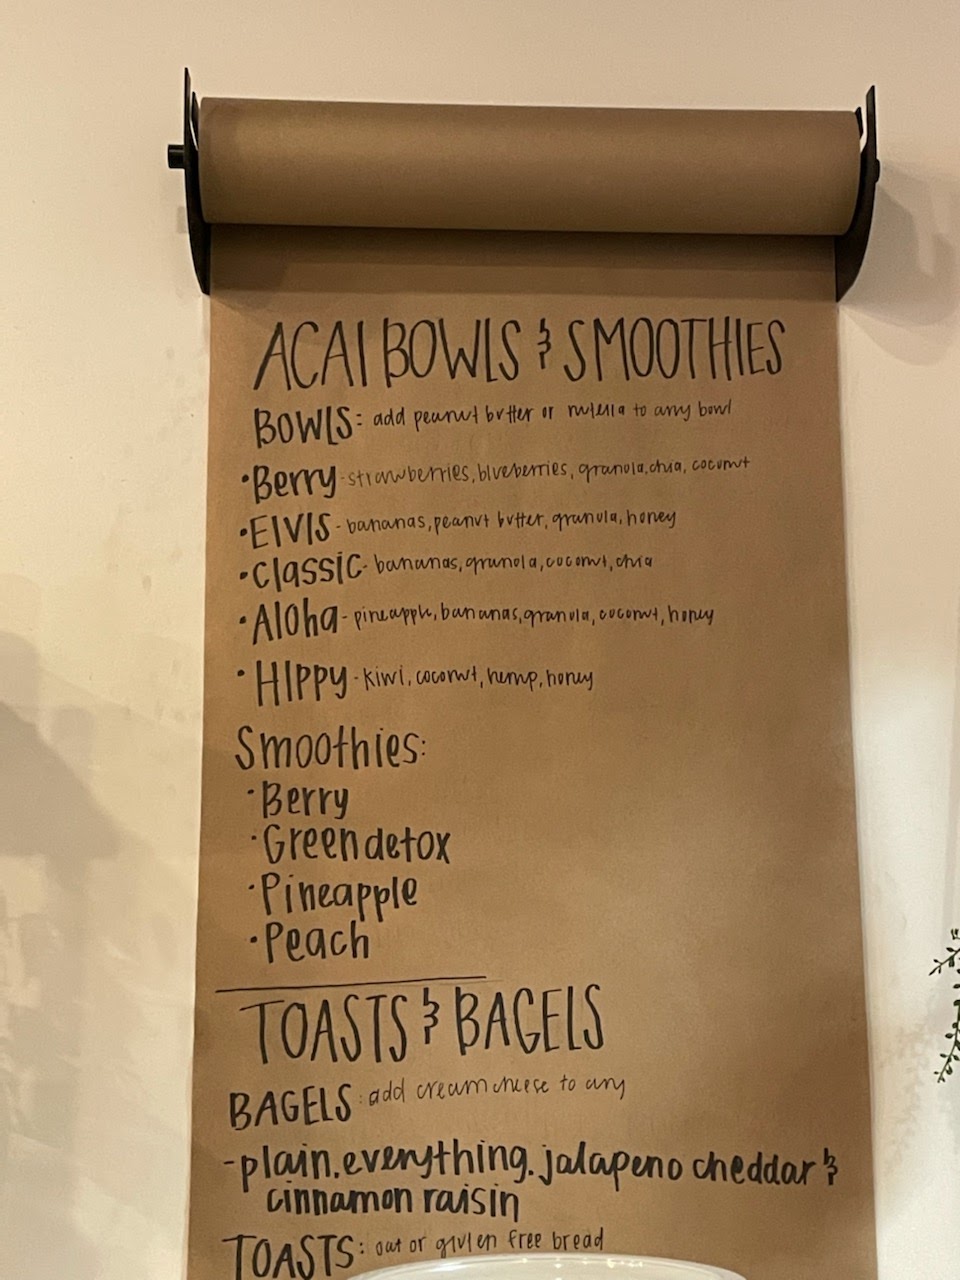 ACAI BOWLS & SMOOTHIES
BOWLS: add peanut butter or nutella to any bowl
•Berry-strawberries, blueberries, granola, chia, coconut
•Elvis-bananas, peanut butter, granola, honey
•Classic-bananas, granola, coconut, chia
•Aloha-pineapple, bananas, granola, coconut, honey
•Hippy-kiwi, coconut, hemp, honey
Smoothies:
•Berry
•Green detox
•Pineapple
•Peach
TOASTS & BAGELS
BAGELS: add cream cheese to any
-plain, everything, jalapeno cheddar &
cinnamon raisin
TOASTS: oat or gluten free bread